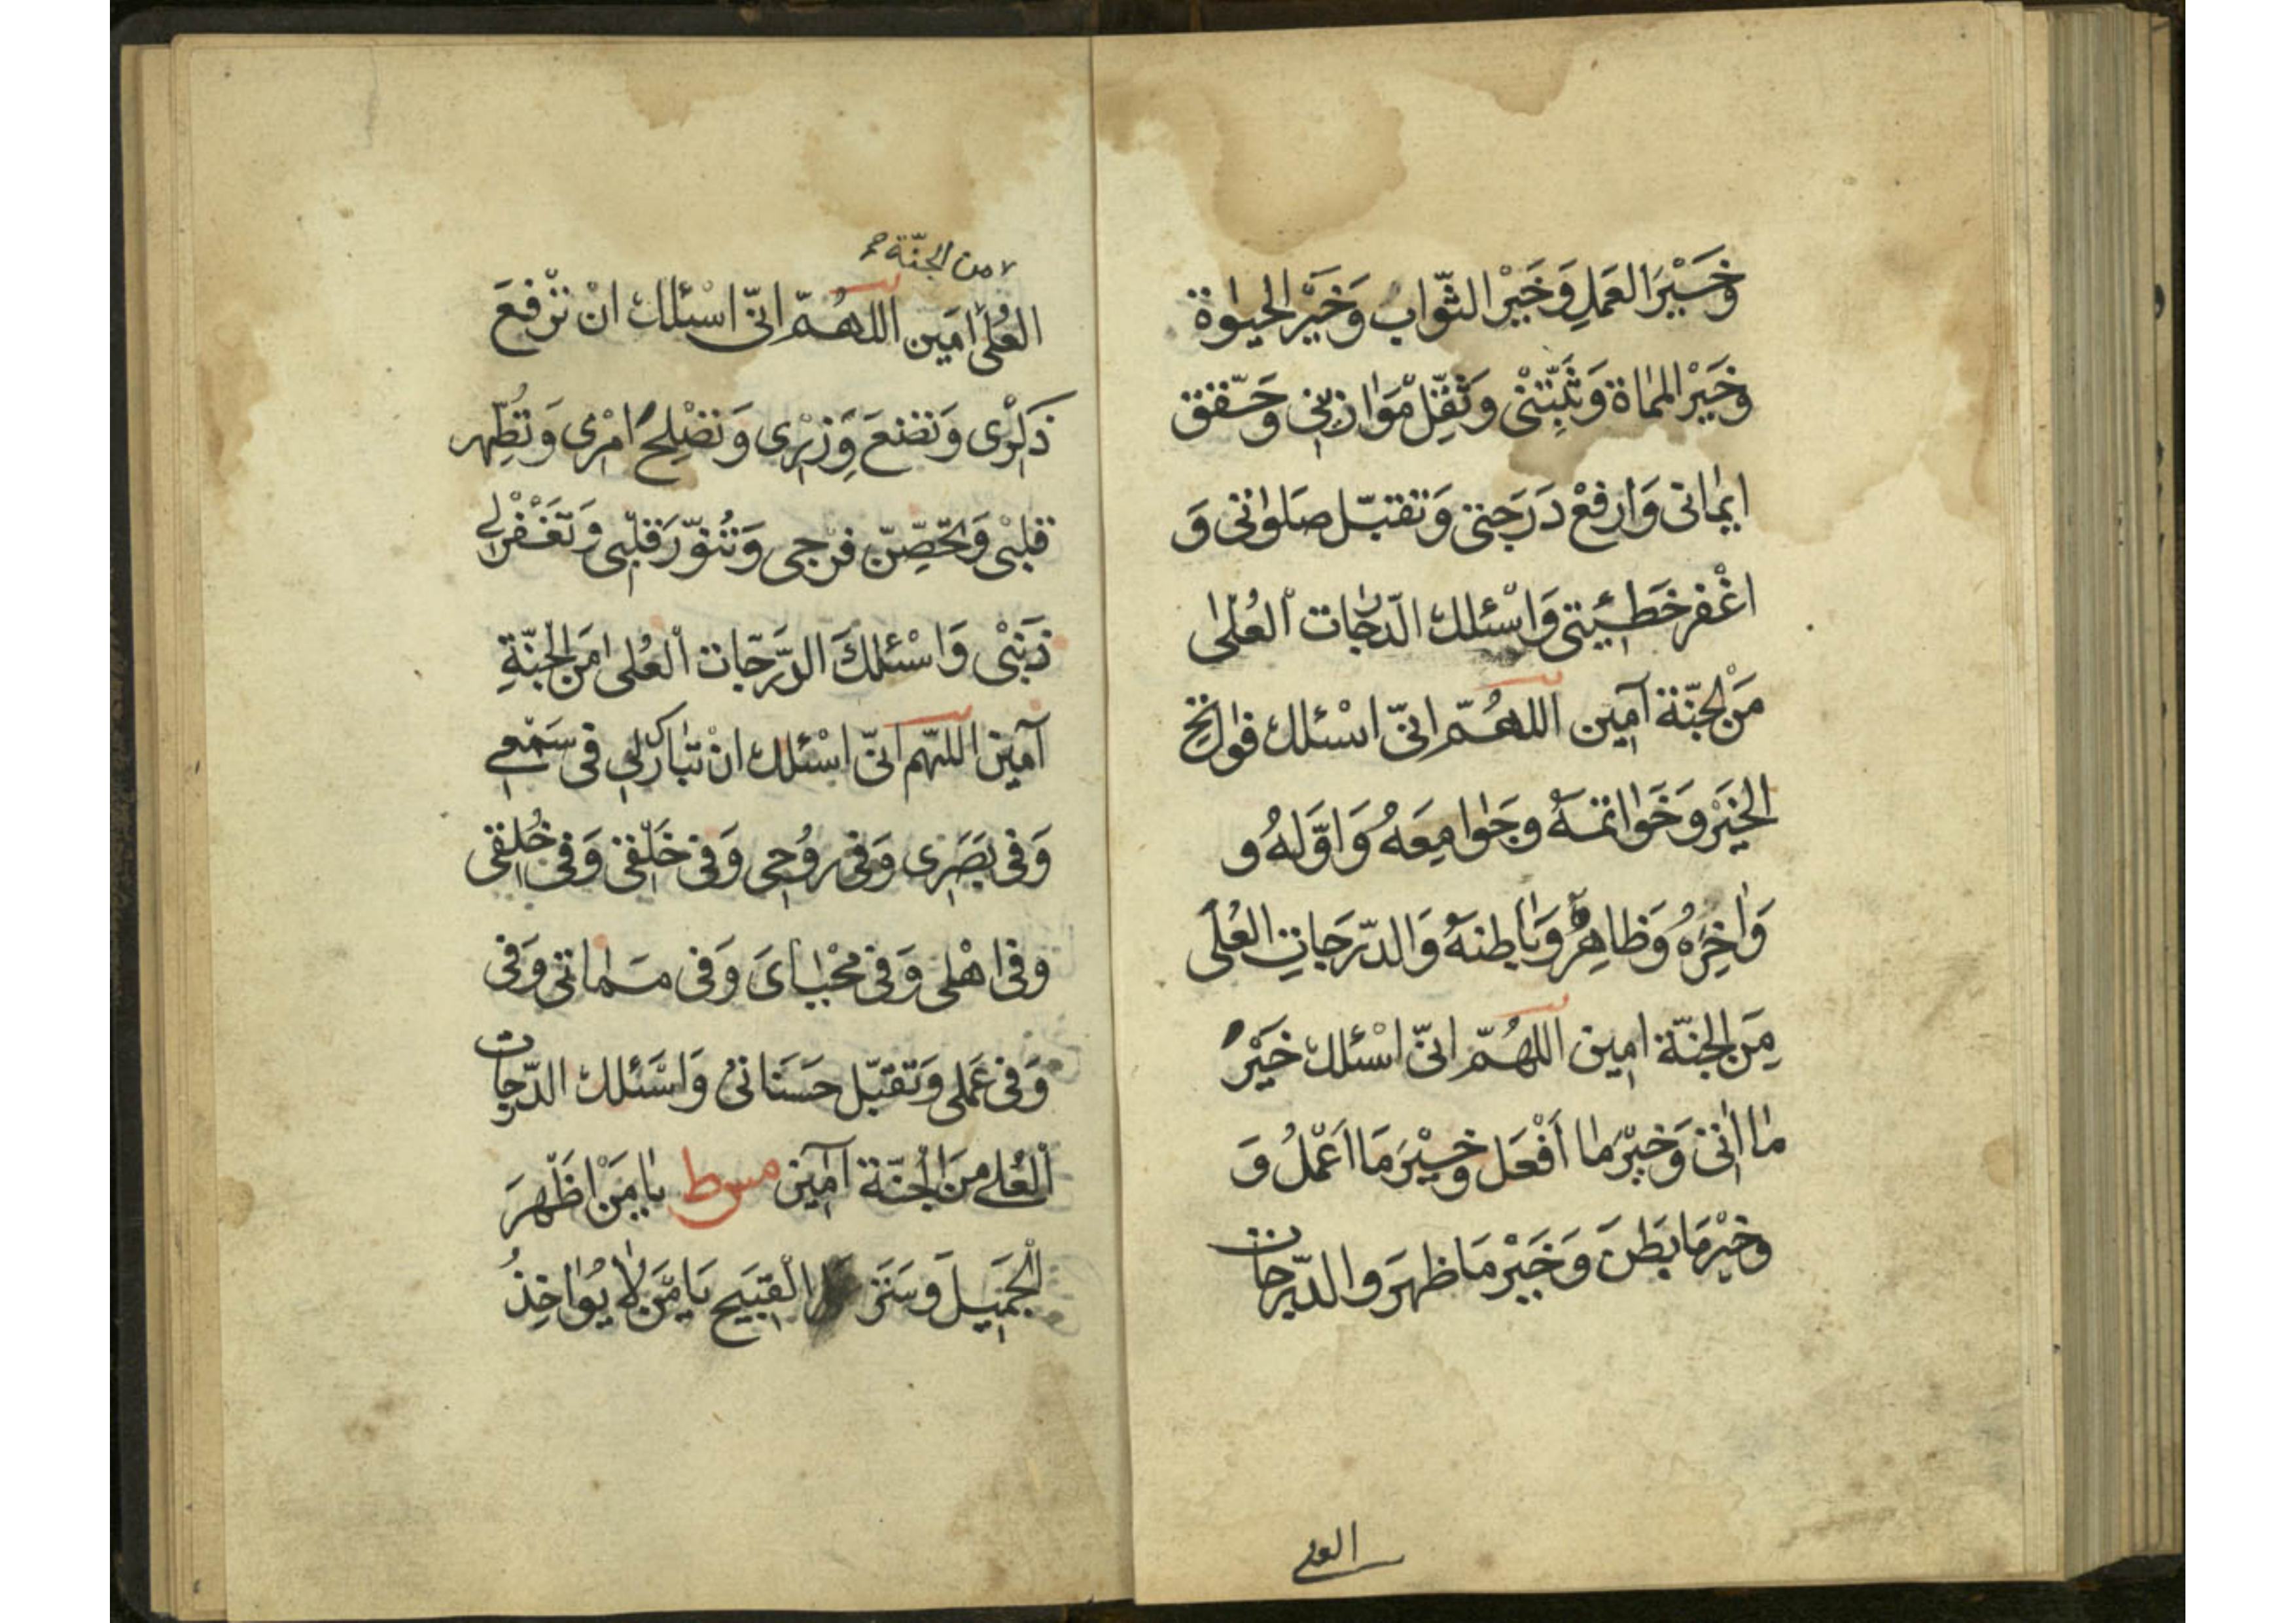 وَخَيْرَ العَمَلِ وَخَيْرَ الثّوابُ وَخَيْرَ الحيوٰة
وَخَيْرَ المماة وَثَبِّتْنى وَثَقِّلْ مَوَازيني وَحَقّق
ايمانى وَارفَعْ دَرَجَتى وَتقبّل صَلواتى وَ
اغْفر خَطيئتى وَاسْئلك الدّرجات العُلىٰ
مِنَ الجنّة آمين اللهُمّ انّى اسْئلك فواتح
الخَيْر وَخَوَاتمَهُ وجَوامِعَهُ وَاوّلهُ و
وَاخِرَهُ وَظاهِرَهُ وَبَاطِنهُ وَالدّرَجَاتِ العُلَى
مِنَ الجنّة امين اللهُمّ انّى اسْئلك خَيْرَ
مٰا اتى وَخَيْرَ مٰا أَفْعَل وَخَيْرَ مَا اَعْمَلُ وَ
وَخيْرَ مَا بَطَنَ وَخَيْرَ مَا ظَهَرَ والدّرجات
العلى
من الجنّة
العُلىٰ امَين اللهُمّ انّى اسْئلك انْ ترْفعَ
ذكرى وَتضعَ وِزْرى وَتصْلِحَ امْرى وَتُطهّر
قلبْى وَتحَصِّنّ فرْجى وَتُنوّرَ قلبّى وَتَغْفرْ لى
ذنبْى وَاسْئلكَ الدّرَجَات العُلى مَن الجنّةِ
آمين اللهّم انّى اسْئلك انْ تبٰارك لى فى سَمْعى
وَفى بَصَرى وَفى روُحى وَفى خَلْقى وَفى خُلقى
وفى اهْلى وَفى محْيٰاىَ وَفى مماتى وَفى
وَفى عَملى وَتقبّل حسَنَاتى وَاسْئلك الدّرجات
العُلى منَ الجنّة آمين مسط يٰا مَنْ اظْهَرَ
الجَميلَ وَسَتَرَ القَبيحَ يَا مَن لا يُوٰاخِذُ